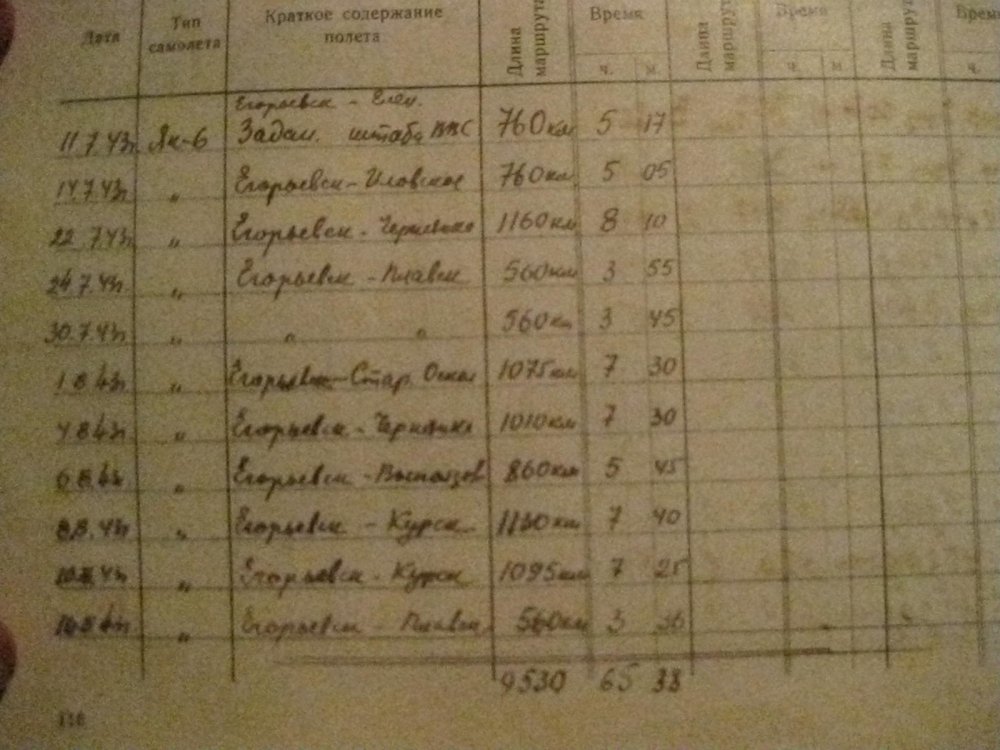 Дата Тип самолета Краткое содержание полета Длина маршрута Время Длина маршрута Время Длина маршрута Время
ч. м. ч. м ч.
Егорьевск - Елец.
11.7.43г. Як-6 Задан. штаба ВВС 760км 5 17
14.7.43г. " Егорьевск - Иловское 760км 5 05
22.7.43г. " Егорьевск - 1160км 8 10
24.7.43г. " Егорьевск - Плавск 560км 3 55
30.7.43г. " " " 560км 3 45
1.8.43г. " Егорьевск - Стар. Оскол 1075км 7 30
4.8.43г. " Егорьевск - 1010км 7 30
6.8.43г. " Егорьевск - 860км 5 45
8.8.43г. " Егорьевск - Курск 1130км 7 40
" Егорьевск - Курск 1095км 7 25
" Егорьевск - Плавск 560км 3 36
9530 65 38
116